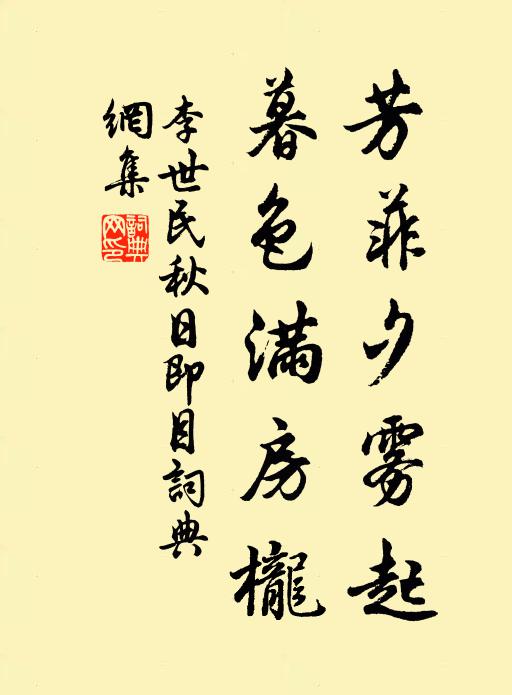 芳菲夕雾起
暮色满房櫳
李世民秋日即目詞典
網集
詞典
网印